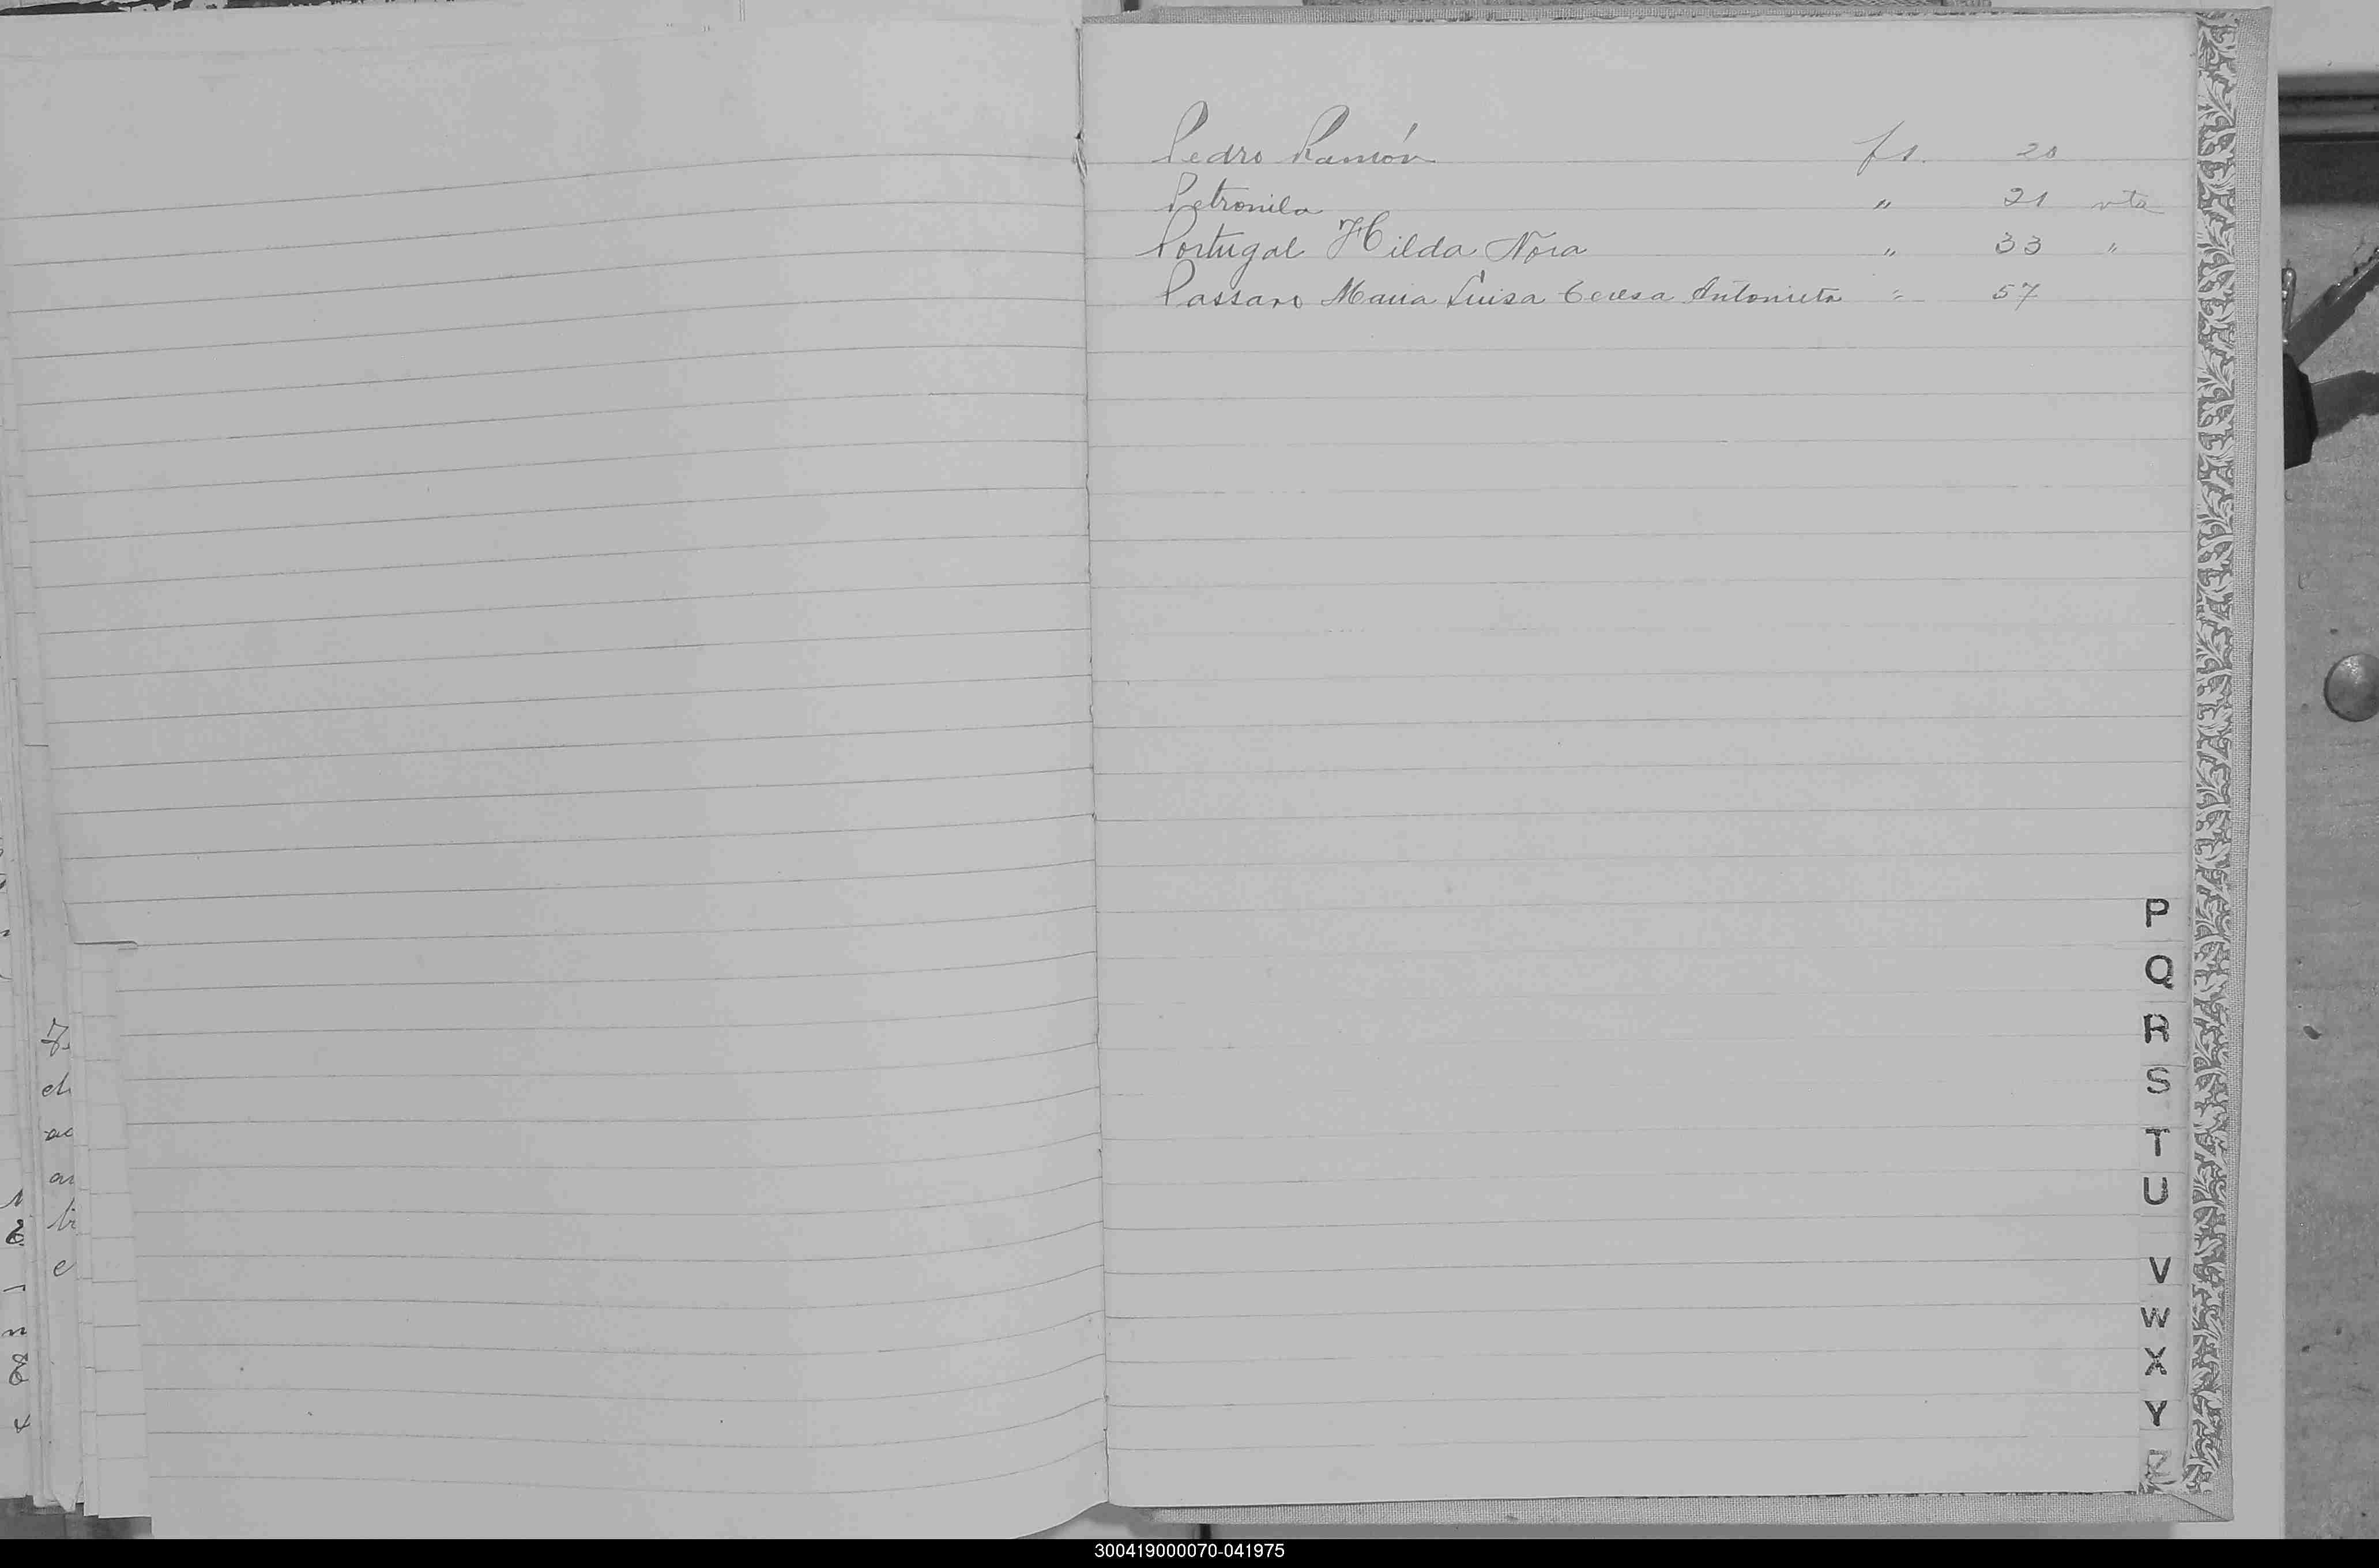 Pedro Ramón fs. 20
Petronila " 21 vta
Portugal Hilda Nora " 33 "
Passaro Maria Luisa Teresa Antonieta " 57
P
Q
R
S
T
U
V
W
X
Y
Z
300419000070-041975